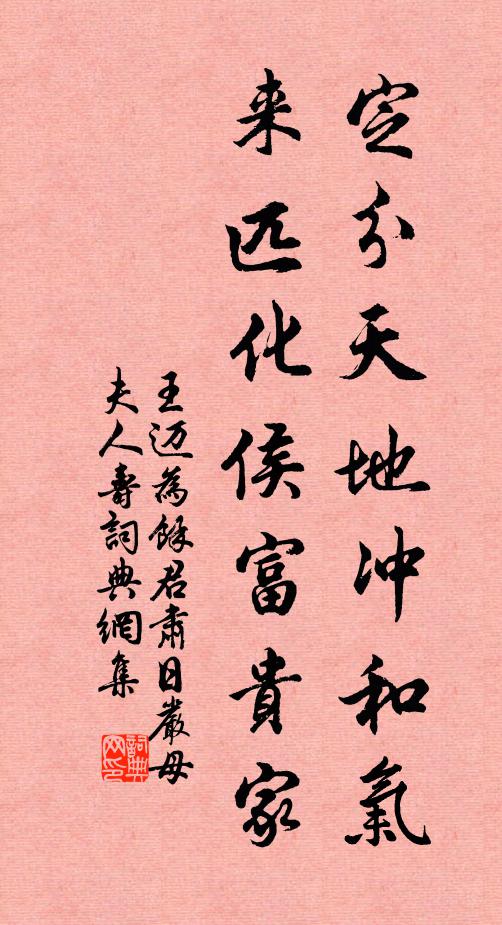 定分天地冲和氣
来匹化侯富貴家
王迈為餘君肅日嚴母
夫人壽詞典網集
詞典
网印